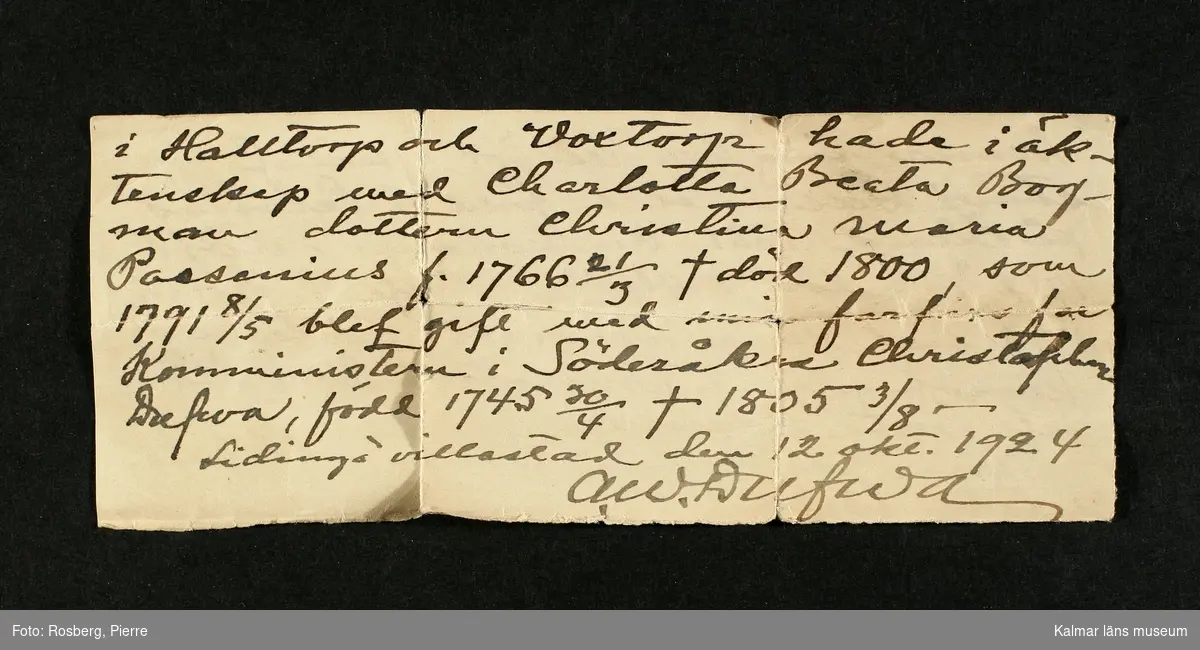 i Halltorp och Voxtorp hade i äk-
tenskap med Charlotta Beata Bog-
man dottern Christina Maria
Passenius f. 1766 21/3 † död 1800, som
1791 8/5 blef gift med min farfars far
Komministern i Söderåkra Christopher
Dufwa, född 1745 30/4 † 1805 3/8 –
Lidingö villastad den 12 okt. 1924
A.W. Dufwa
Foto: Rosberg, Pierre
Kalmar läns museum